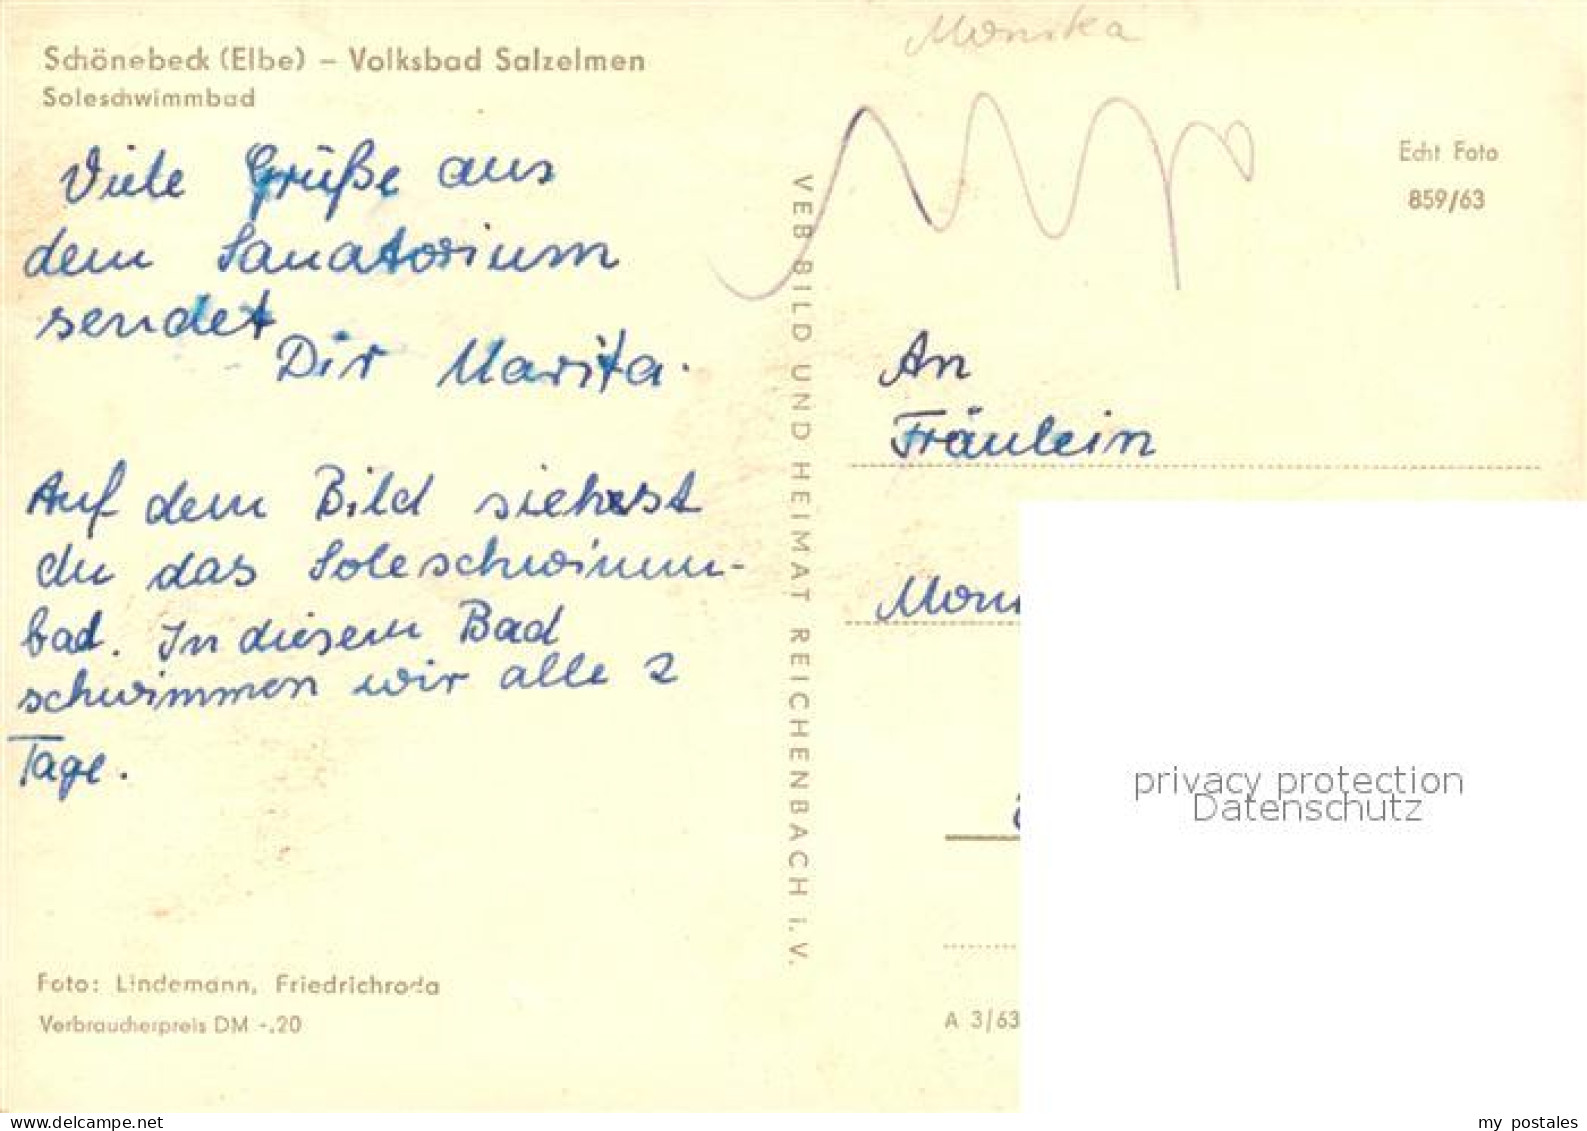 Schönebeck (Elbe) – Volksbad Salzelmen
Soleschwimmbad
Viele Grüße aus
dem Sanatorium
sendet
Dir Marita.
Auf dem Bild siehst
du das Soleschwimm-
bad. In diesem Bad
schwimmen wir alle 2
Tage.
Foto: Lindemann, Friedrichroda
Verbraucherpreis DM -.20
VEB BILD UND HEIMAT REICHENBACH i. V.
Monika
Echt Foto
859/63
An
Fräulein
Moni
A 3/63
privacy protection
Datenschutz
delcampe.net
my_postales